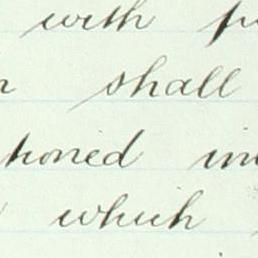 with
shall
tioned in
which